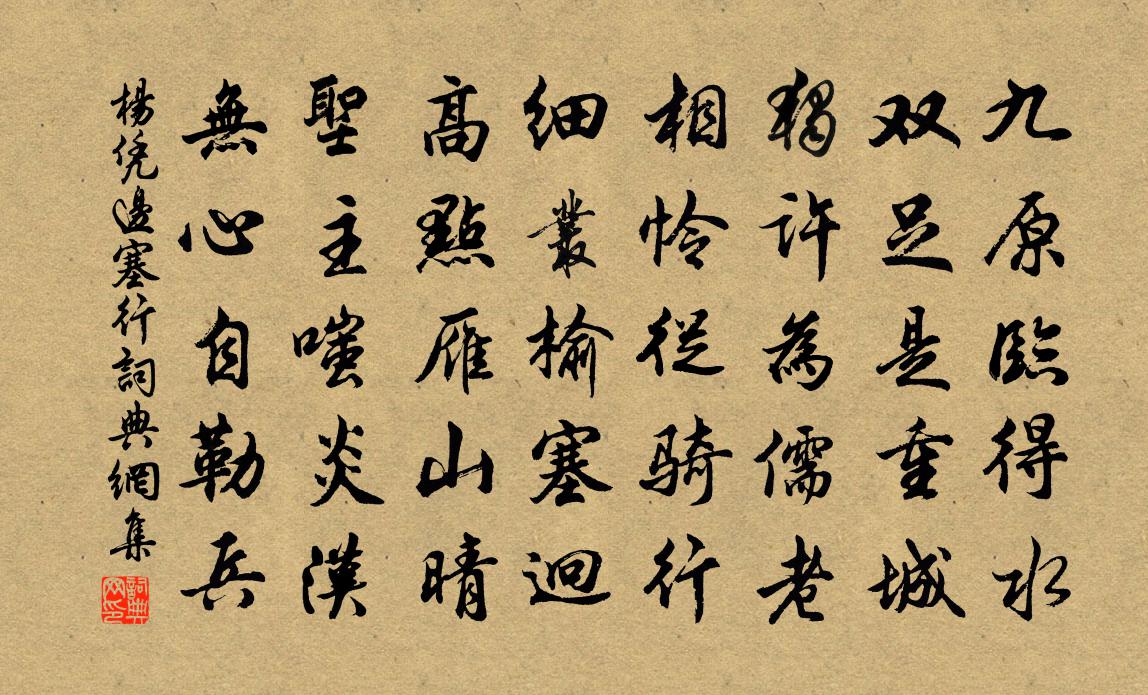 九原臨得水
双足是重城
獨許為儒老
相怜從骑行
細叢榆塞迥
高點雁山晴
聖主嗤炎漢
無心自勒兵
楊凭邊塞行詞典網集
詞典网印